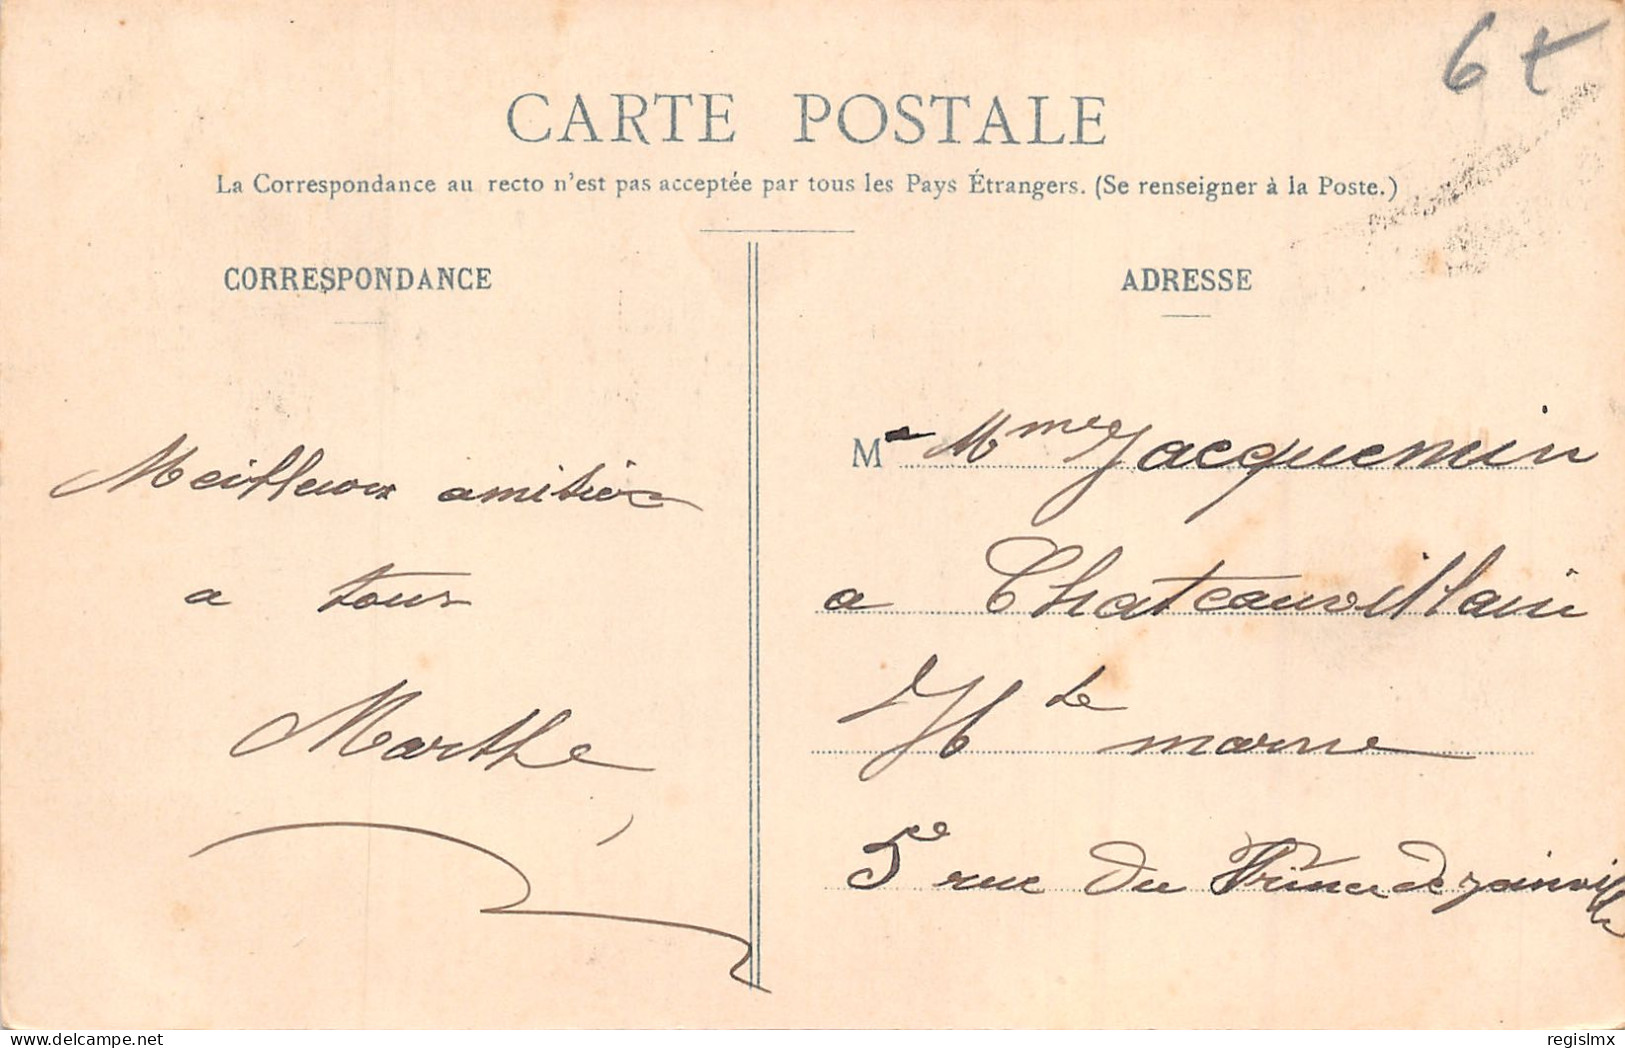 6 t
CARTE POSTALE
La Correspondance au recto n'est pas acceptée par tous les Pays Étrangers. (Se renseigner à la Poste.)
CORRESPONDANCE
Meilleures amitiés
a tous
Marthe
ADRESSE
M Mme Jacquemin
a Chateauvillain
Hte marne
5e rue du Prince de Joinville
www.delcampe.net
regislmx